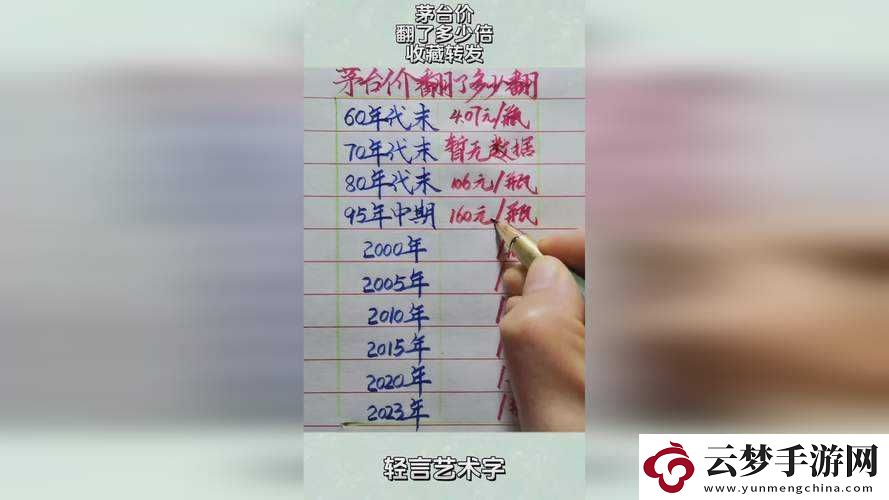 茅台价
翻了多少倍
收藏转发
茅台价翻了多少翻
60年代末 4.07元/瓶
70年代末 暂无数据
80年代末 106元/瓶
95年中期 160元/瓶
2000年 /
2005年 /
2010年 /
2015年 /
2020年 /
2023年 /
轻言艺术字
云梦手游网
www.yunmengchina.com